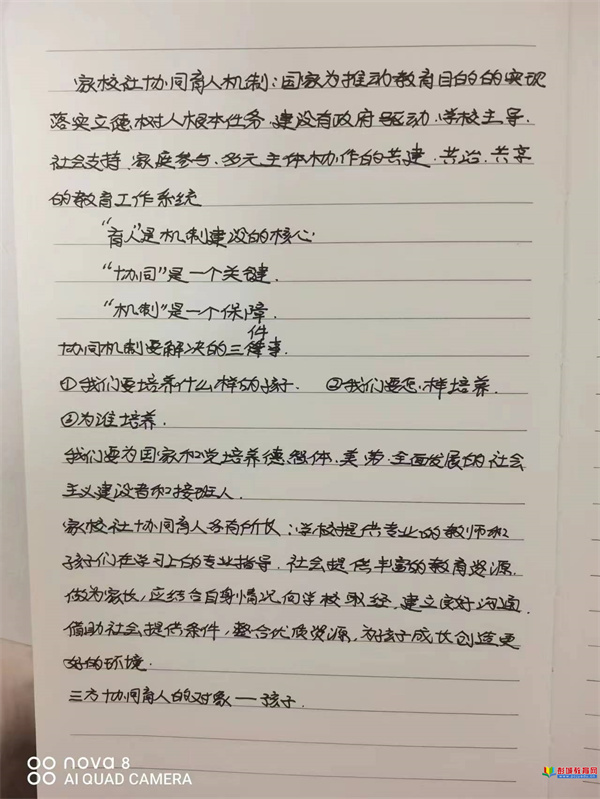 家校社协同育人机制:国家为推动教育目的的实现
落实立德树人根本任务,建设有政府驱动,学校主导,
社会支持,家庭参与,多元主体协作的共建,共治,共享
的教育工作系统
“育人”是机制建设的核心
“协同”是一个关键.
“机制”是一个保障.
件
协同机制要解决的三事.
①我们要培养什么样的孩子. ②我们要怎样培养.
③为谁培养.
我们要为国家和党培养德智体.美劳.全面发展的社会
主义建设者和接班人.
家校社协同育人各有所长:学校提供专业的教师和
孩子们在学习上的专业指导,社会提供丰富的教育资源,
做为家长,应结合自身情况向学校取经,建立良好沟通,
借助社会提供条件,整合优质资源,为孩子成长创造更
好的环境.
三方协同育人的对象—孩子.
nova 8
AI QUAD CAMERA
彭城教育网